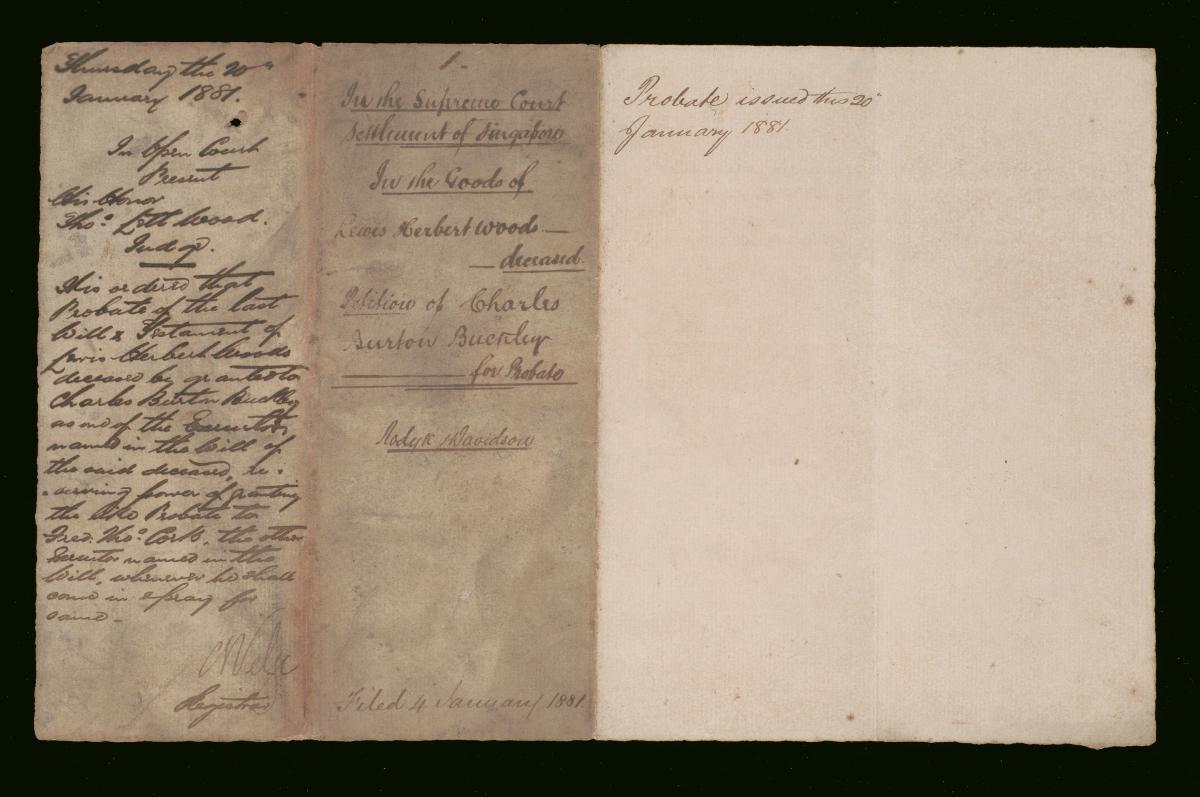 Thursday the 20th
January 1881.
In Open Court
Present
His Honor
Thos. Wood.
Judge.
It is ordered that
Probate of the last
Will & Testament of
Lewis Herbert Woods
deceased be granted to
Charles Burton Buckley
as one of the Executors
named in the Will of
the said deceased, re-
-serving power of granting
the like Probate to
Fred. Thos. Cork, the other
Executor named in the
Will, whenever he shall
come in & pray for
same -
Registrar
1-
In the Supreme Court
Settlement of Singapore
In the Goods of
Lewis Herbert Woods —
— deceased.
Petition of Charles
Burton Buckley
for Probate
Rodyk & Davidson
Filed 4 January 1881
Probate issued this 20th
January 1881.